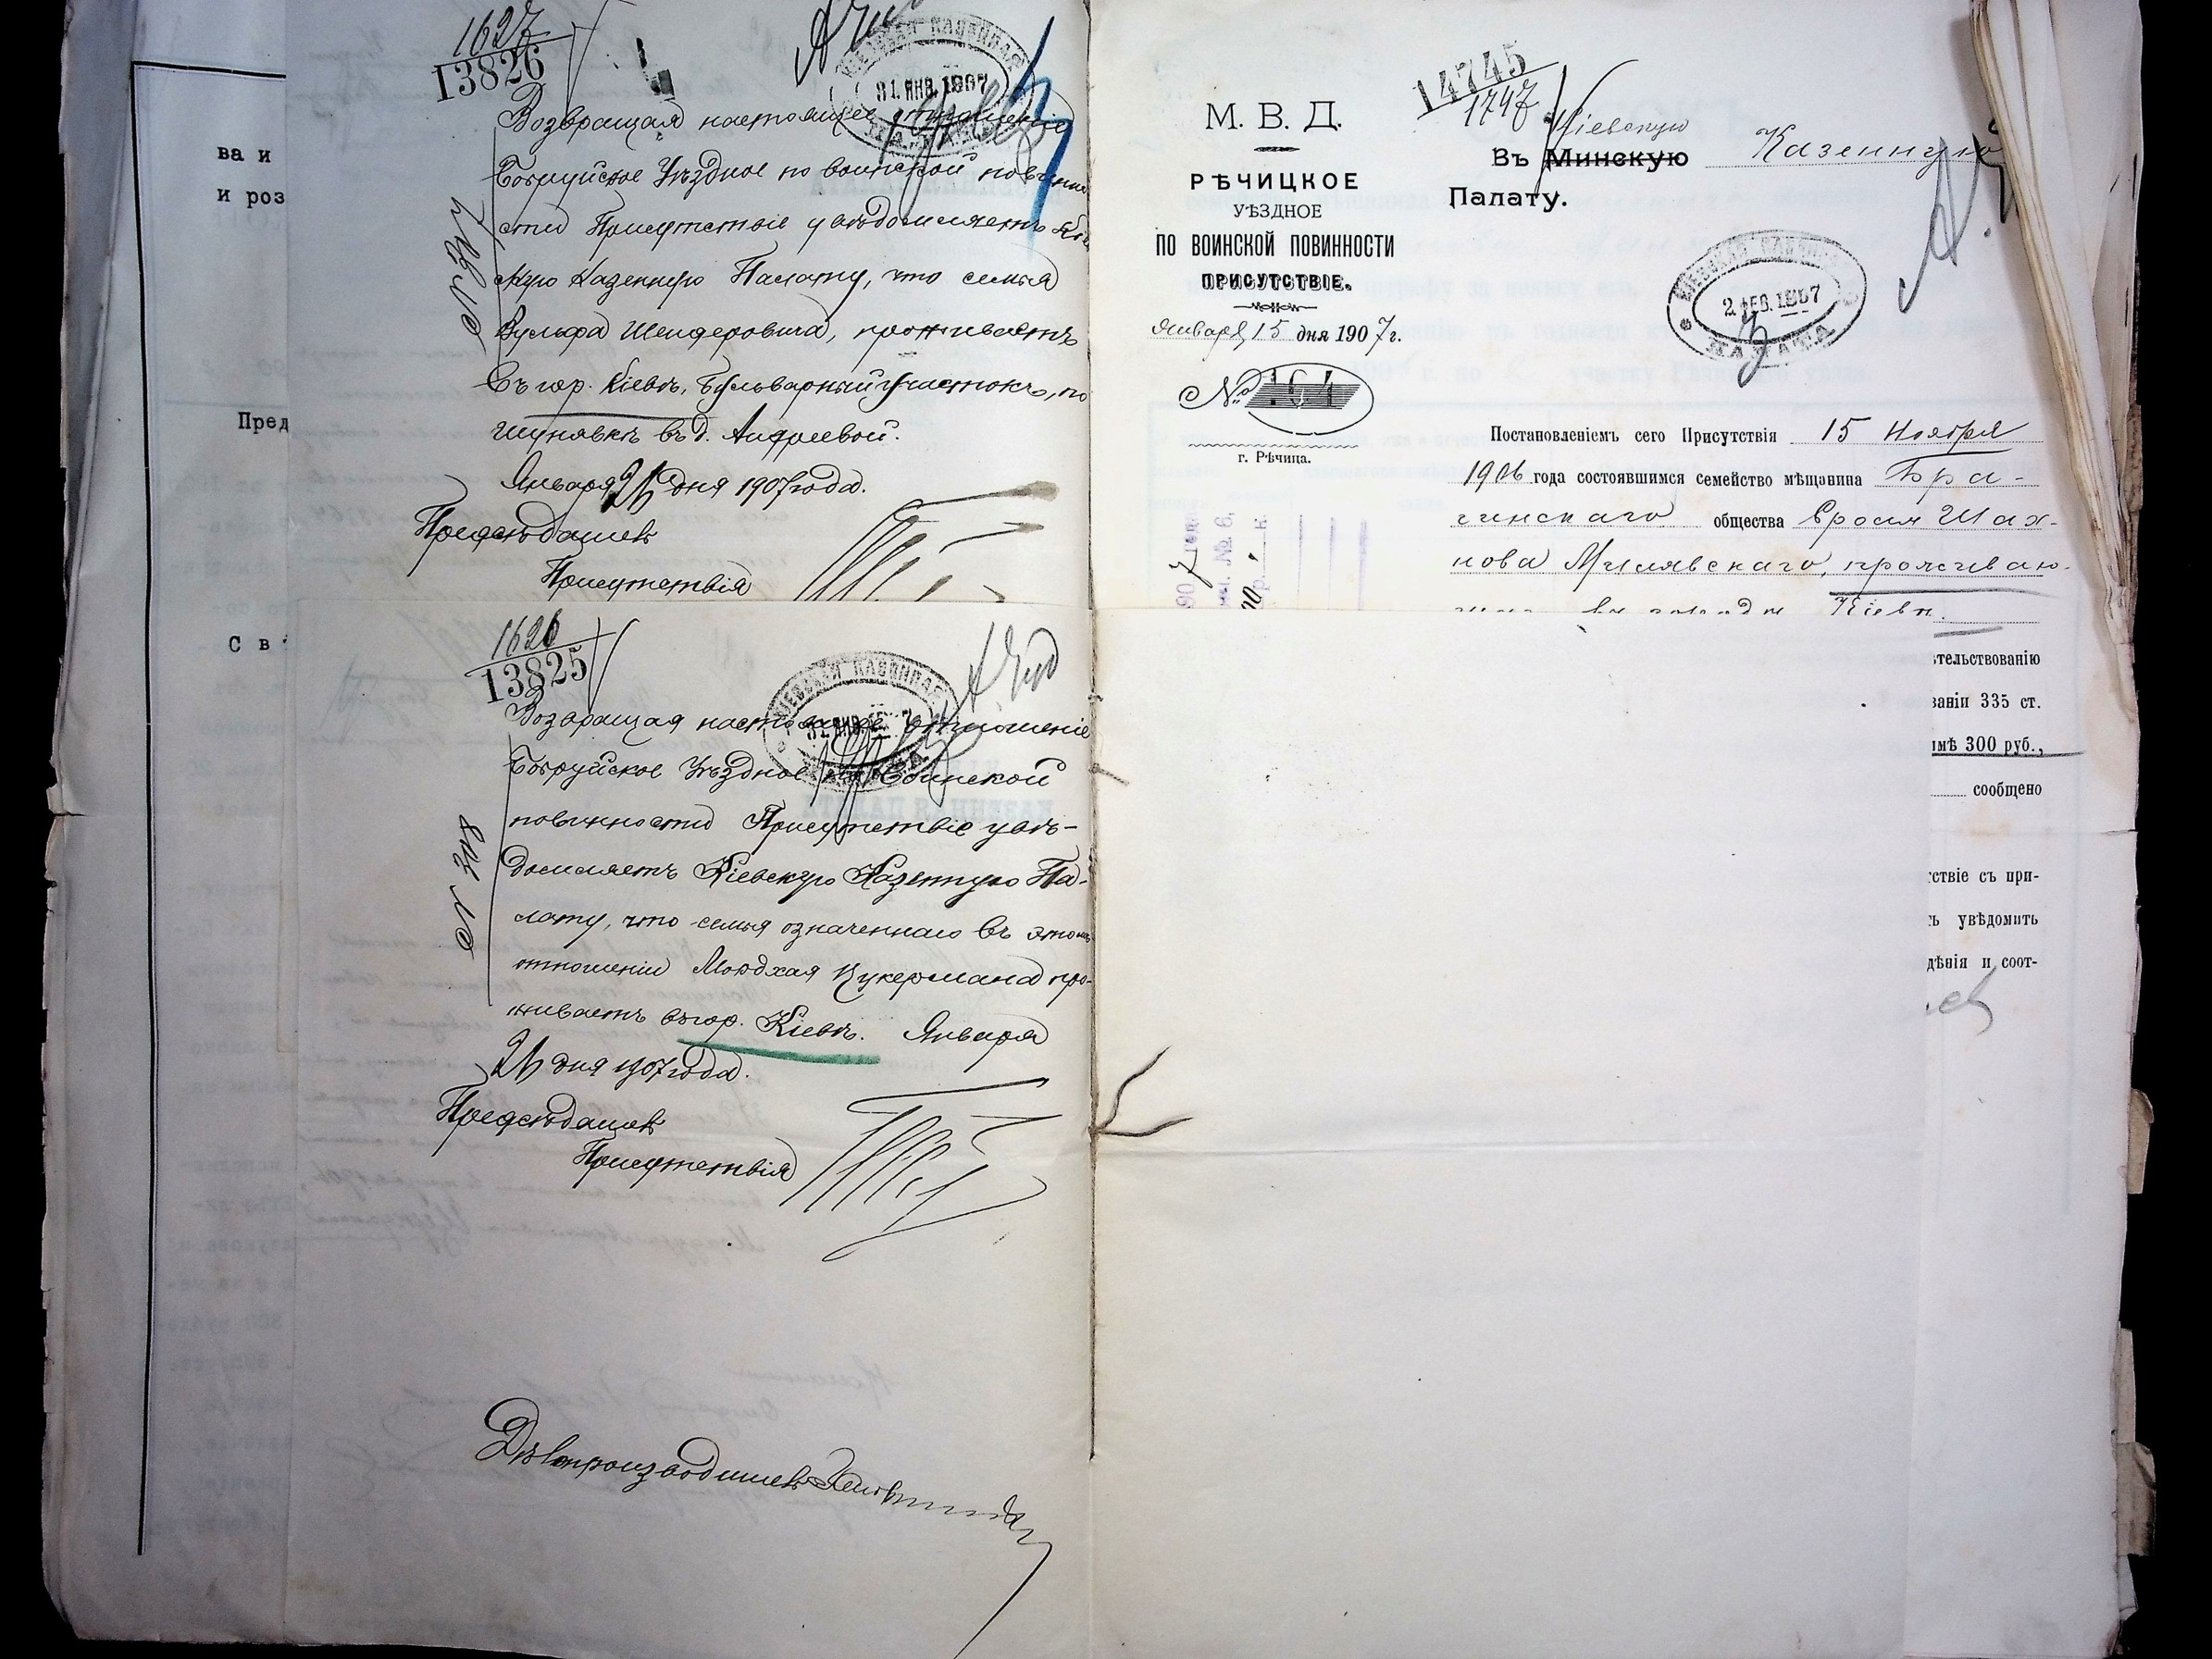 ва и
и роз
Пред
С в
1627
13826
КІЕВСКАЯ КАЗЕННАЯ
31 ЯНВ. 1907
ПАЛАТА
Возвращая настоящее отношеніе
Бобруйское Уѣздное по воинской повинно
сти Присутствіе увѣдомляетъ Кіев
скую Казенную Палату, что семья
Вульфа Шендеровича, проживаетъ
въ гор. Кіевѣ, Бульварный участокъ, по
въ д. Андреевой.
Января 26 дня 1907 года.
Предсѣдатель
Присутствія
1626
13825
КІЕВСКАЯ КАЗЕННАЯ
31 ЯНВ.
Возвращая настоящее отношеніе
Бобруйское Уѣздное по воинской
повинности Присутствіе увѣ-
домляетъ Кіевскую Казенную Па-
лату, что семья означеннаго въ этомъ
отношеніи Мордхая Цукермана про-
живаетъ въ гор. Кіевѣ. Января
26 дня 1907 года.
Предсѣдатель
Присутствія
Дѣлопроизводитель
М. В. Д.
РѢЧИЦКОЕ
УѢЗДНОЕ
ПО ВОИНСКОЙ ПОВИННОСТИ
ПРИСУТСТВІЕ.
Января 15 дня 1907 г.
№ 104
г. Рѣчица.
14745
1747
Кіевскую
Въ Минскую Казенную
Палату.
КІЕВСКАЯ КАЗЕННАЯ
2 ФЕВ. 1907
ПАЛАТА
Постановленіемъ сего Присутствія 15 Ноября
1906 года состоявшимся семейство мѣщанина Бра-
гинскаго общества Сроля Шах-
нова Милявскаго, проживаю-
въ городѣ Кіевѣ.
тельствованію
ваніи 335 ст.
ммѣ 300 руб.,
сообщено
тствіе съ при-
ь увѣдомить
дѣнія и соот-